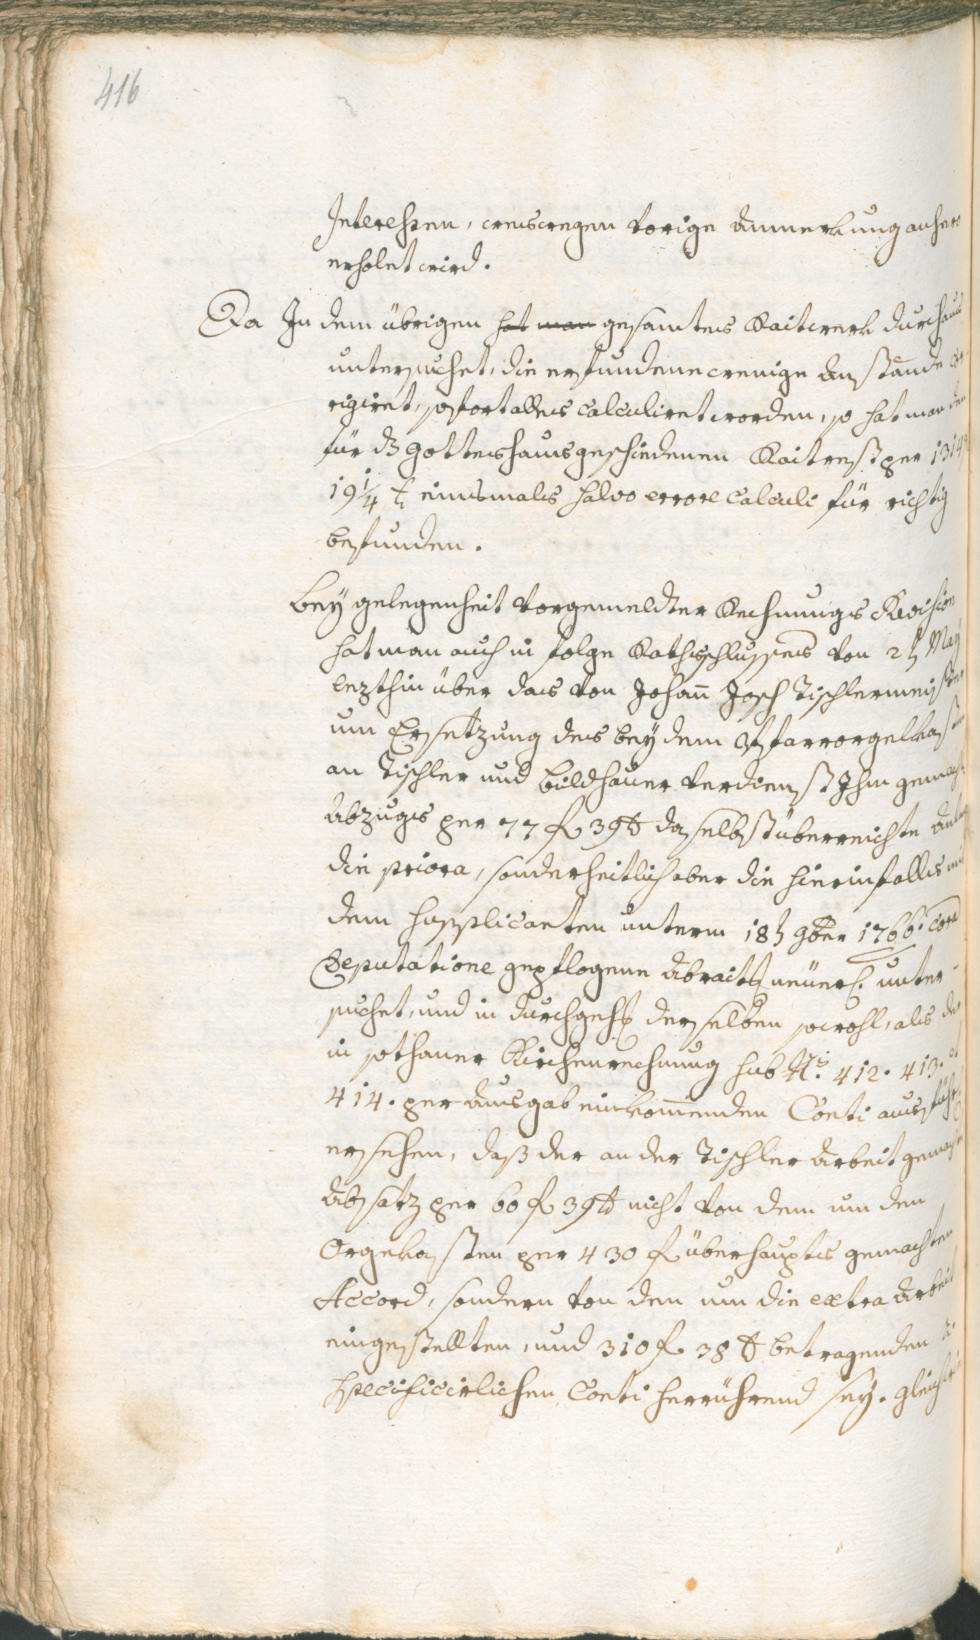 416
Interessen, wesswegen vorige Anmerkung anhero
erholet wird.
Da In dem übrigen hat man gesamtes Raitwerk durchaus
untersuchet, die erfundene wenige Anstände
rigiret, sofort alles calculiret worden, so hat man den
für dz Gotteshaus geschiedenen Raitrest per
19 1/4 einsmals salvo errore calculi für richtig
befunden.
Bey gelegenheit vorgemeldter Rechnungs Revision
hat man auch in folge Rathsschlusses von 2t May
lezthin über das von Johan Josch Tischlermeister
um Ersetzung des bey dem Pfarrorgelkasten
an Tischler und Bildhauer verdienst Ihm gemacht
Abzugs per 77 f 39 daselbst überreichte
die priora, sonderheitlich aber die hierinfalls mit
dem supplicanten unterm 18t 9ber 1766. cora
Deputatione gepflogene Abraitg neüerl. unter-
suchet, und in durchgehg derselben sowohl, als der
in sothaner Kirchenrechnung sub No. 412. 413. et
414. per Ausgab einkomenden Conti
ersehen, daß der an der Tischler Arbeit gemachte
Absatz per 60 f 39 nicht von dem um den
Orgelkasten per 430 f überhaupts gemachten
Accord, sondern von den um die extra Arbeit
eingestellten, und 310 f 38 betragenden
specificirlichen Conti herrührend sey.